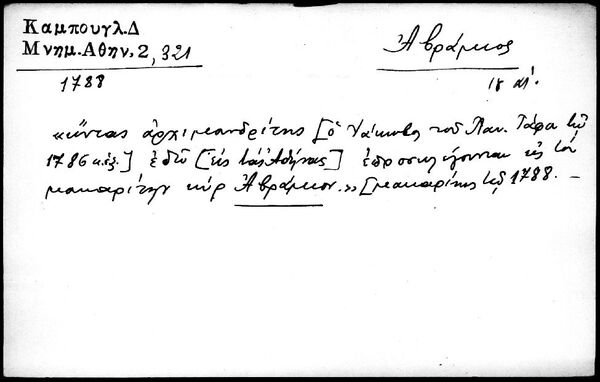 Καμπουγλ.Δ
Μνημ.Αθην.2,321
Ἀβράμιος
1788
ιη αἰ.
«ὄντας ἀρχιμανδρίτης [ὁ Ἰάκωβος τοῦ Παν. Τάφου τῷ
1786 κ.ἑξ.] ἐδῶ [εἰς τὰς Ἀθήνας] εἰς τὸν
μακαρίτην κύρ Ἀβράμιον.» [μακαρίτης τῷ 1788. –